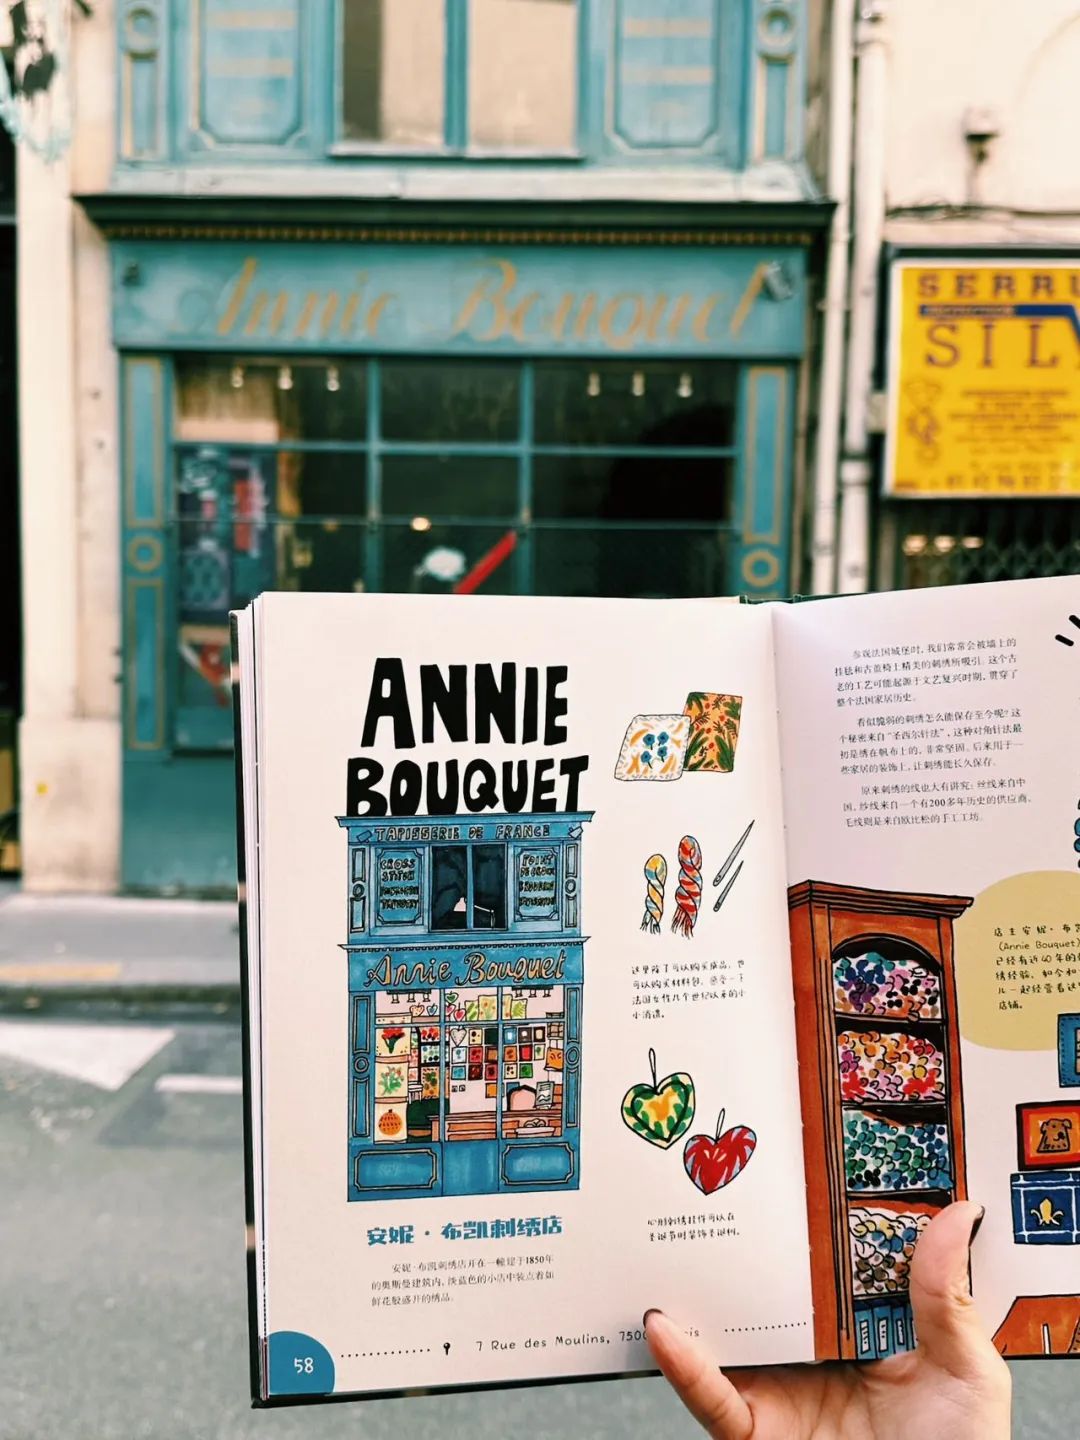 Annie Bouquet
SERRU
SIL
ANNIE
BOUQUET
TAPISSERIE DE FRANCE
CROSS
STITCH
TAPISTRY
POINT
DE CROIX
Annie Bouquet
安妮·布凯刺绣店
安妮·布凯刺绣店开在一幢建于1850年
的奥斯曼建筑内，淡蓝色的小店中装点着如
鲜花般盛开的绣品。
58
7 Rue des Moulins, 750
is
这里除了可以购买成品，也
可以购买材料包，感受一下
法国女性几个世纪以来的小
小消遣。
心形刺绣挂件可以在
圣诞节时装饰圣诞树。
参观法国城堡时，我们常常会被墙上的
挂毯和古董椅上精美的刺绣所吸引。这个古
老的工艺可能起源于文艺复兴时期，贯穿了
整个法国家居历史。
看似脆弱的刺绣怎么能保存至今呢？这
个秘密来自“圣西尔针法”，这种对角针法最
初是绣在帆布上的，非常坚固。后来用于一
些家居的装饰上，让刺绣能长久保存。
原来刺绣的线也大有讲究：丝线来自中
国，纱线来自一个有200多年历史的供应商，
毛线则是来自欧比松的手工工坊。
店主安妮·布
（Annie Bouquet）
已经有近40年的
绣经验，如今和
儿一起经营着这
店铺。